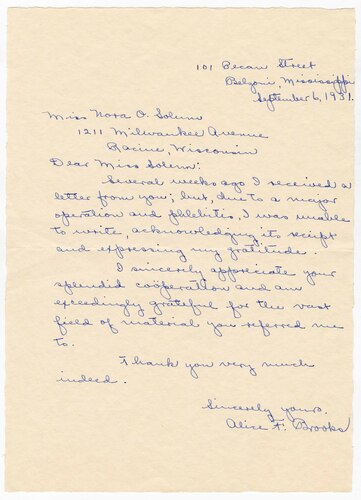 101 Pecan Street
Belzoni, Mississippi
September 6, 1951.
Miss Nora O. Solum
1211 Milwaukee Avenue
Racine, Wisconsin
Dear Miss Solum:
Several weeks ago I received a
letter from you; but, due to a major
operation and phlebitis, I was unable
to write, acknowledging its receipt
and expressing my gratitude.
I sincerely appreciate your
splendid coöperation and am
exceedingly grateful for the vast
field of material you referred me
to.
Thank you very much
indeed.
Sincerely yours,
Alice F. Brooks